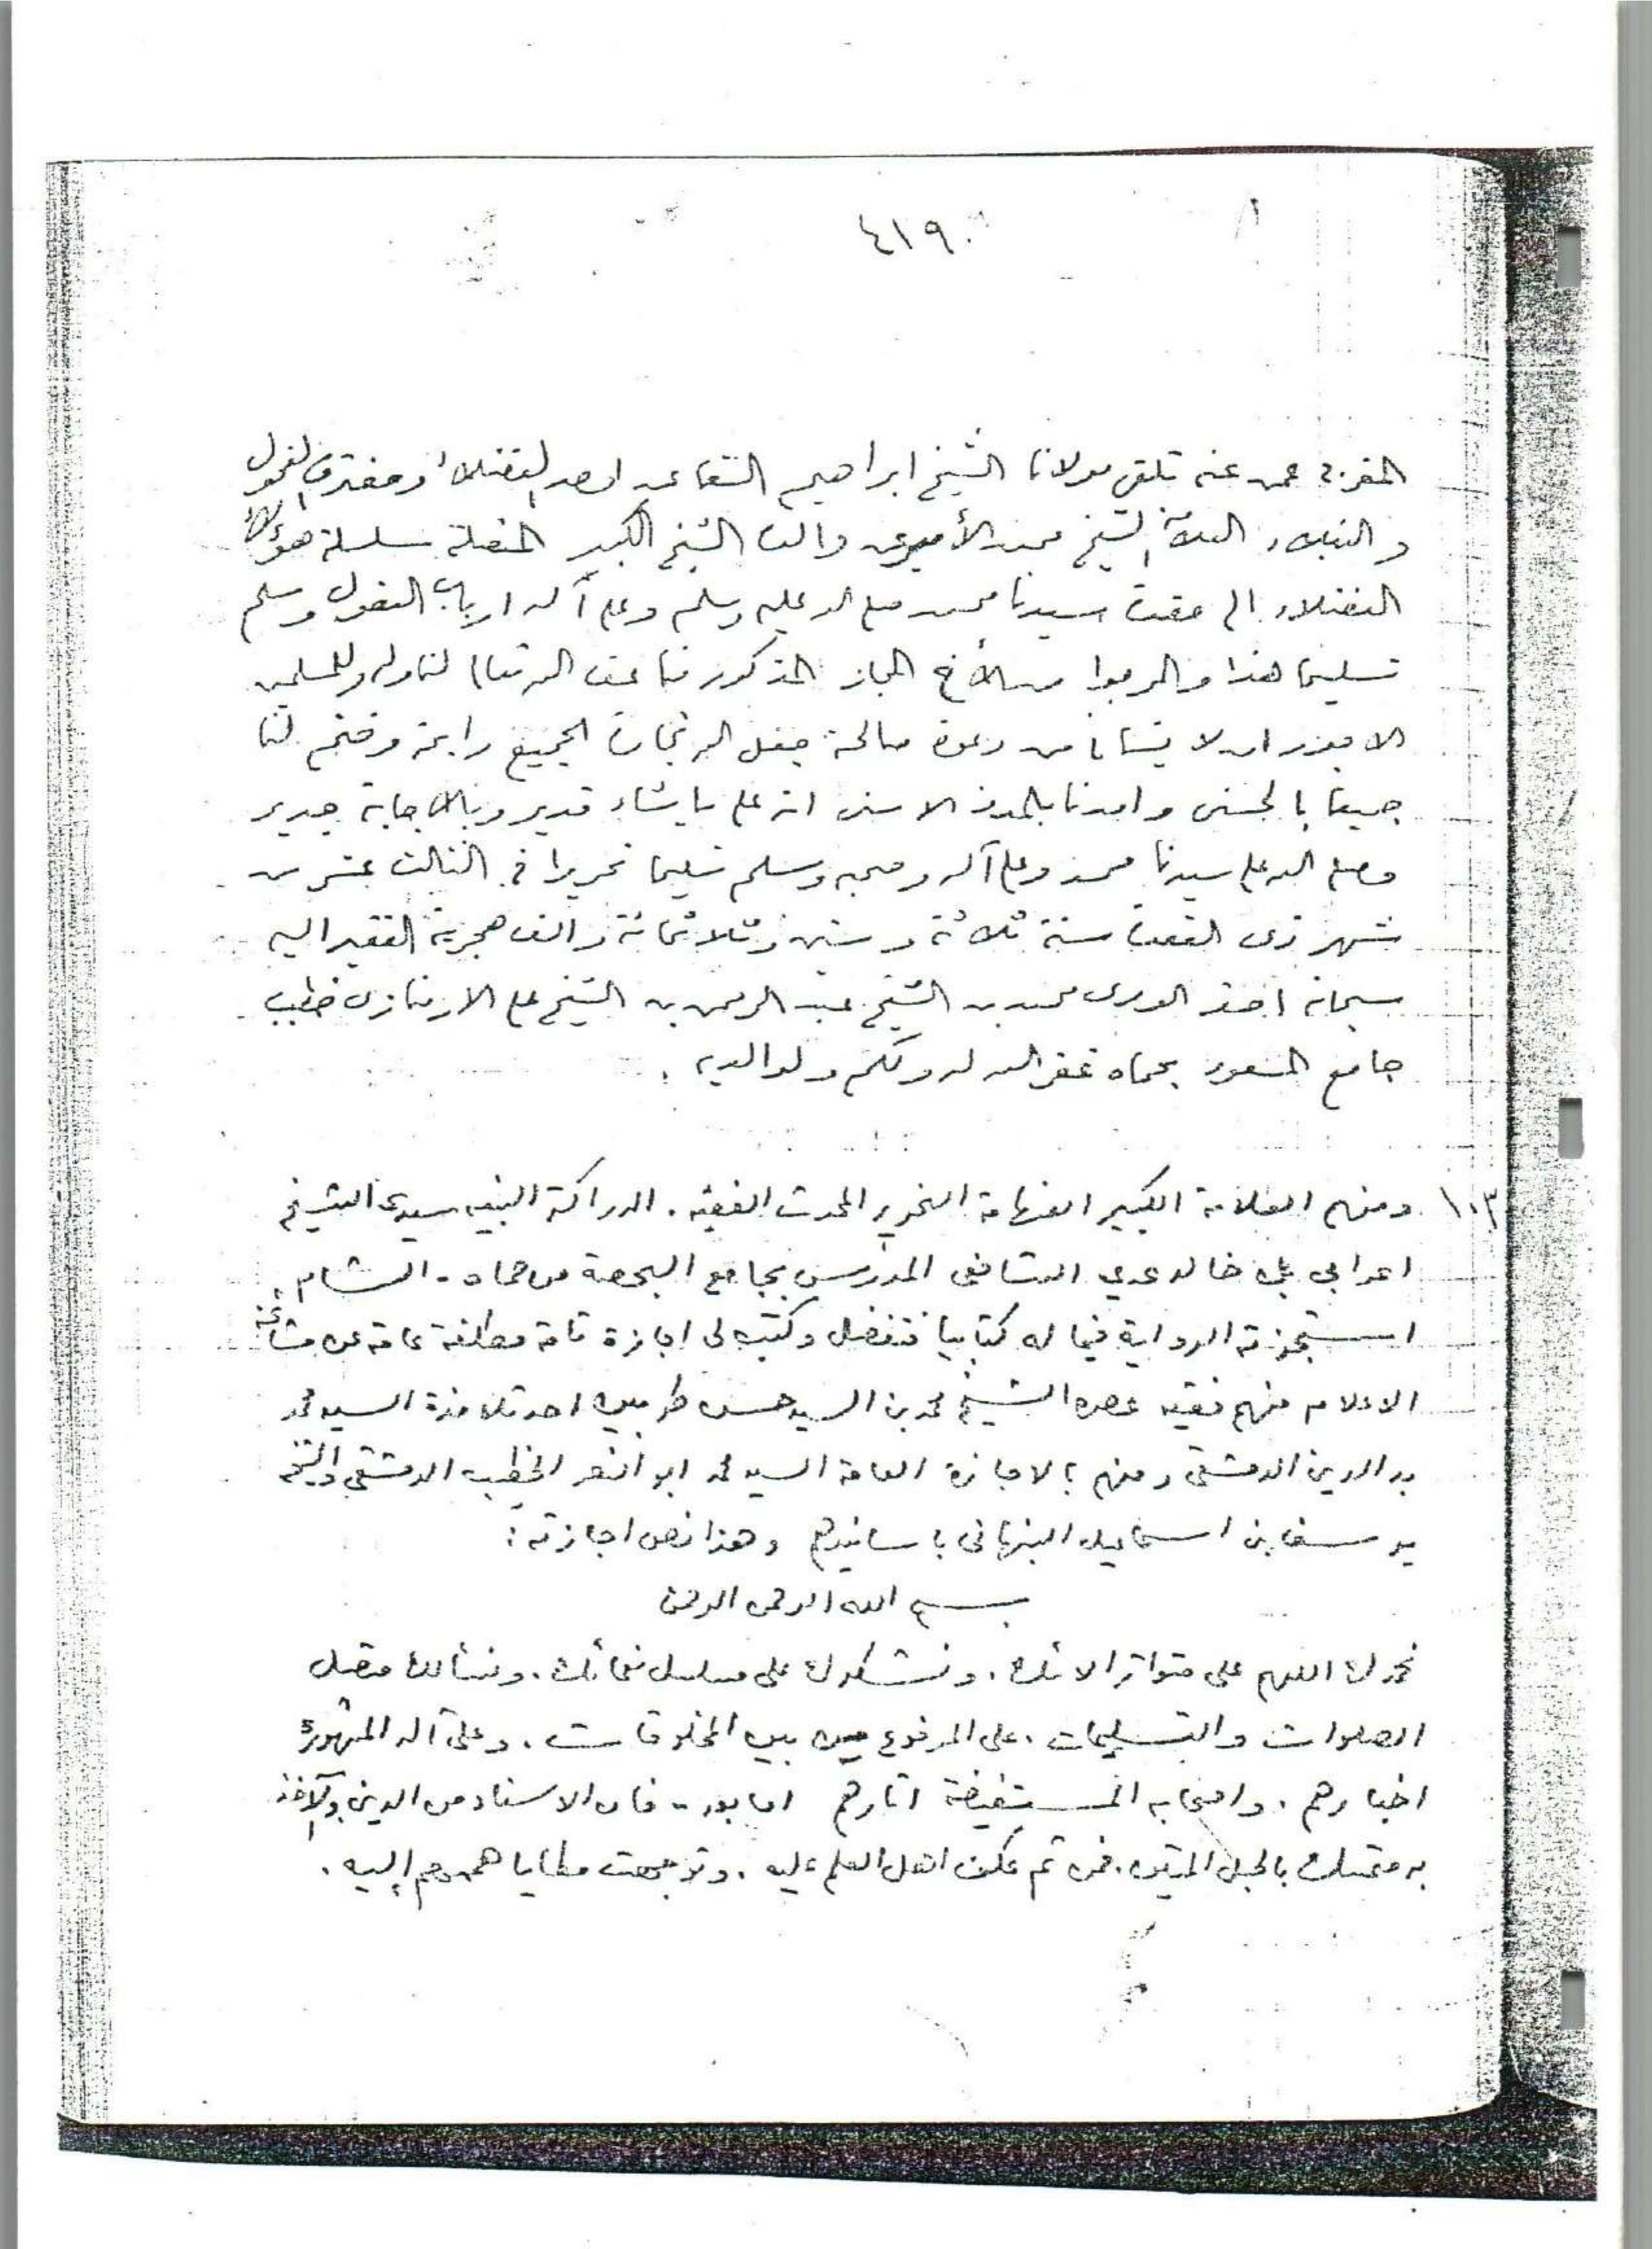 ٤١٩
المغربي عمن عنه تلقى مولانا الشيخ ابراهيم السقا عن اوحد الفضلاء ومغترف الفحول
والنبلاء العلامة الشيخ محمد الأمير عن والده الشيخ الكبير المتصلة سلسلة هؤلاء
الفضلاء الى حضرة سيدنا محمد صلى الله عليه وسلم وعلى آله ارباب الفضول وسلم
تسليما هذا والمرجوا من الأخ المجاز المذكور منا عفى الله تعالى لنا وله وللمسلمين
الاجور ان لا ينسانا من دعوة صالحة جعل الله تجارة الجميع رابحة وختم لنا
جميعا بالحسنى وامدنا بالمدد الاسنى انه على ما يشاء قدير وبالاجابة جدير
وصلى الله على سيدنا محمد وعلى آله وصحبه وسلم تسليما تحريرا في الثالث عشر من
شهر ذى القعدة سنة ثلاثة وستين وثلاثمائة والف هجرية الفقير اليه
سبحانه احقر الورى محمد بن الشيخ عبد الرحمن بن الشيخ على الارمنازى خطيب
جامع المسعود بحماه غفر الله له ولكم ولوالديه .
١٠٣ ومنهم العلامة الكبير الفهامة النحرير المحدث الفقيه . الدراكة النبيه سيدى الشيخ
اعرابي بن خالد عدي الشافعى المدرس بجامع البحصة من حماه - الشام ,
استجزته الرواية فيما له كتابيا فتفضل وكتب لى اجازة تامة مطلقة عامة عن مشائخه
الاعلام منهم فقيه عصره الشيخ محمد بن السيد حسن طرميس احد تلامذة السيد محمد
بدر الدين الدمشقى ومنهم بالاجازة العامة السيد محمد ابو النصر الخطيب الدمشقى والشيخ
يوسف بن اسماعيل النبهانى باسانيدهم وهذا نص اجازته :
بسم الله الرحمن الرحيم
نحمدك اللهم على متواتر الائك . ونشكرك على مسلسل نعمائك . ونسألك متصل
الصلوات والتسليمات . على المرفوع من بين المخلوقات . وعلى آله المشهورة
اخبارهم . واصحابه المستفيضة اثارهم اما بعد - فان الاسناد من الدين والآخذ
به متمسك بالحبل المتين . فمن ثم عكف اهل العلم عليه . وتوجهت مطايا هممهم إليه .